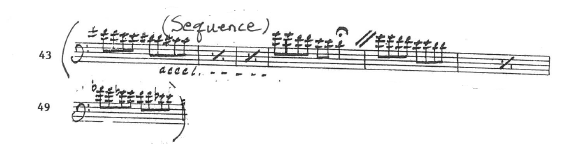 (Sequence)
43
accel.
49